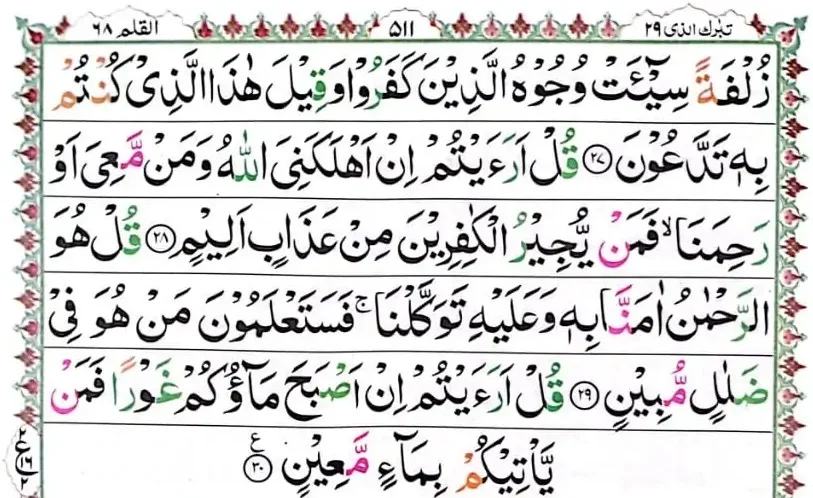 تبٰرك الذی ٢٩ ٥١١ القلم ٦٨
زُلْفَةً سِيْٓـَٔتْ وُجُوْهُ الَّذِيْنَ كَفَرُوْا وَقِيْلَ هٰذَا الَّذِىْ كُنْتُمْ
بِهٖ تَدَّعُوْنَ ﴿٢٧﴾ قُلْ اَرَءَيْتُمْ اِنْ اَهْلَكَنِىَ اللّٰهُ وَمَنْ مَّعِىَ اَوْ
رَحِمَنَا ۙ فَمَنْ يُّجِيْرُ الْكٰفِرِيْنَ مِنْ عَذَابٍ اَلِيْمٍ ﴿٢٨﴾ قُلْ هُوَ
الرَّحْمٰنُ اٰمَنَّا بِهٖ وَعَلَيْهِ تَوَكَّلْنَا ۚ فَسَتَعْلَمُوْنَ مَنْ هُوَ فِىْ
ضَلٰلٍ مُّبِيْنٍ ﴿٢٩﴾ قُلْ اَرَءَيْتُمْ اِنْ اَصْبَحَ مَآؤُكُمْ غَوْرًا فَمَنْ
يَّاْتِيْكُمْ بِمَآءٍ مَّعِيْنٍ ﴿٣٠﴾ ع
٢
ع ١٦
٢